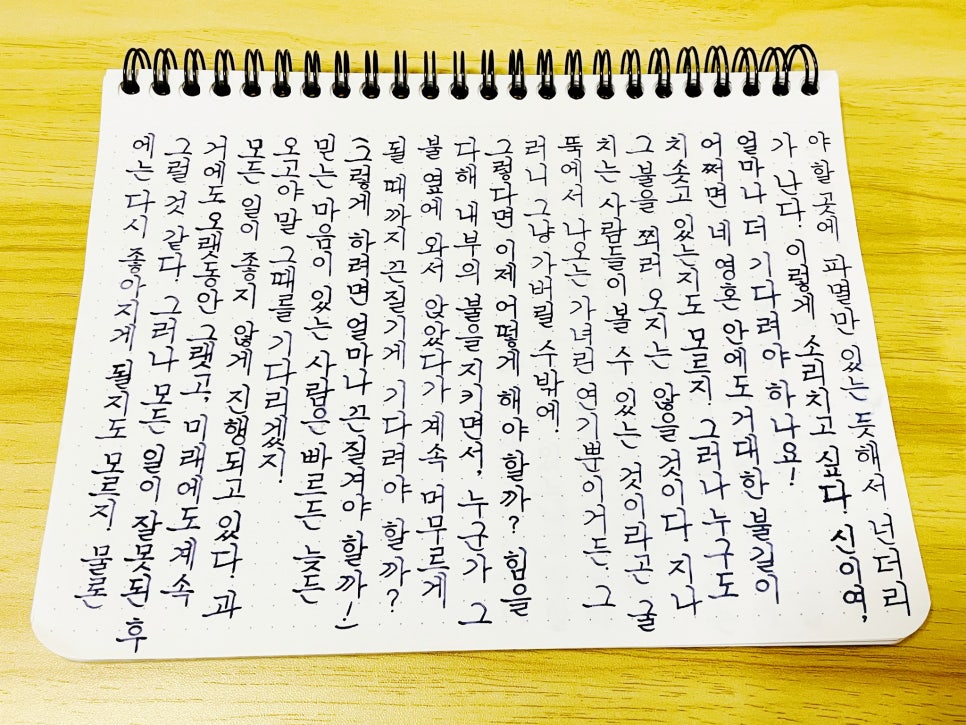 야 할 곳에 파멸만 있는 듯해서 넌더리
가 난다. 이렇게 소리치고 싶다. 신이여,
얼마나 더 기다려야 하나요!
어쩌면 네 영혼 안에도 거대한 불길이
치솟고 있는지도 모르지. 그러나 누구도
그 불을 쬐러 오지는 않을 것이다. 지나
치는 사람들이 볼 수 있는 것이라곤 굴
뚝에서 나오는 가녀린 연기뿐이거든. 그
러니 그냥 가버릴 수밖에.
그렇다면 이제 어떻게 해야 할까? 힘을
다해 내부의 불을 지키면서, 누군가 그
불 옆에 와서 앉았다가 계속 머무르게
될 때까지 끈질기게 기다려야 할까?
그렇게 하려면 얼마나 끈질겨야 할까!
믿는 마음이 있는 사람은 빠르든 늦든
오고야 말 그때를 기다리겠지.
모든 일이 좋지 않게 진행되고 있다. 과
거에도 오랫동안 그랬고, 미래에도 계속
그럴 것 같다. 그러나 모든 일이 잘못된 후
에는 다시 좋아지게 될지도 모르지. 물론